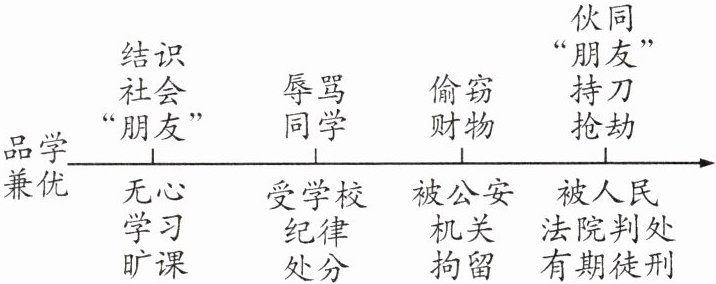 品学
兼优
结识
社会
“朋友”
无心
学习
旷课
辱骂
同学
受学校
纪律
处分
偷窃
财物
被公安
机关
拘留
伙同
“朋友”
持刀
抢劫
被人民
法院判处
有期徒刑